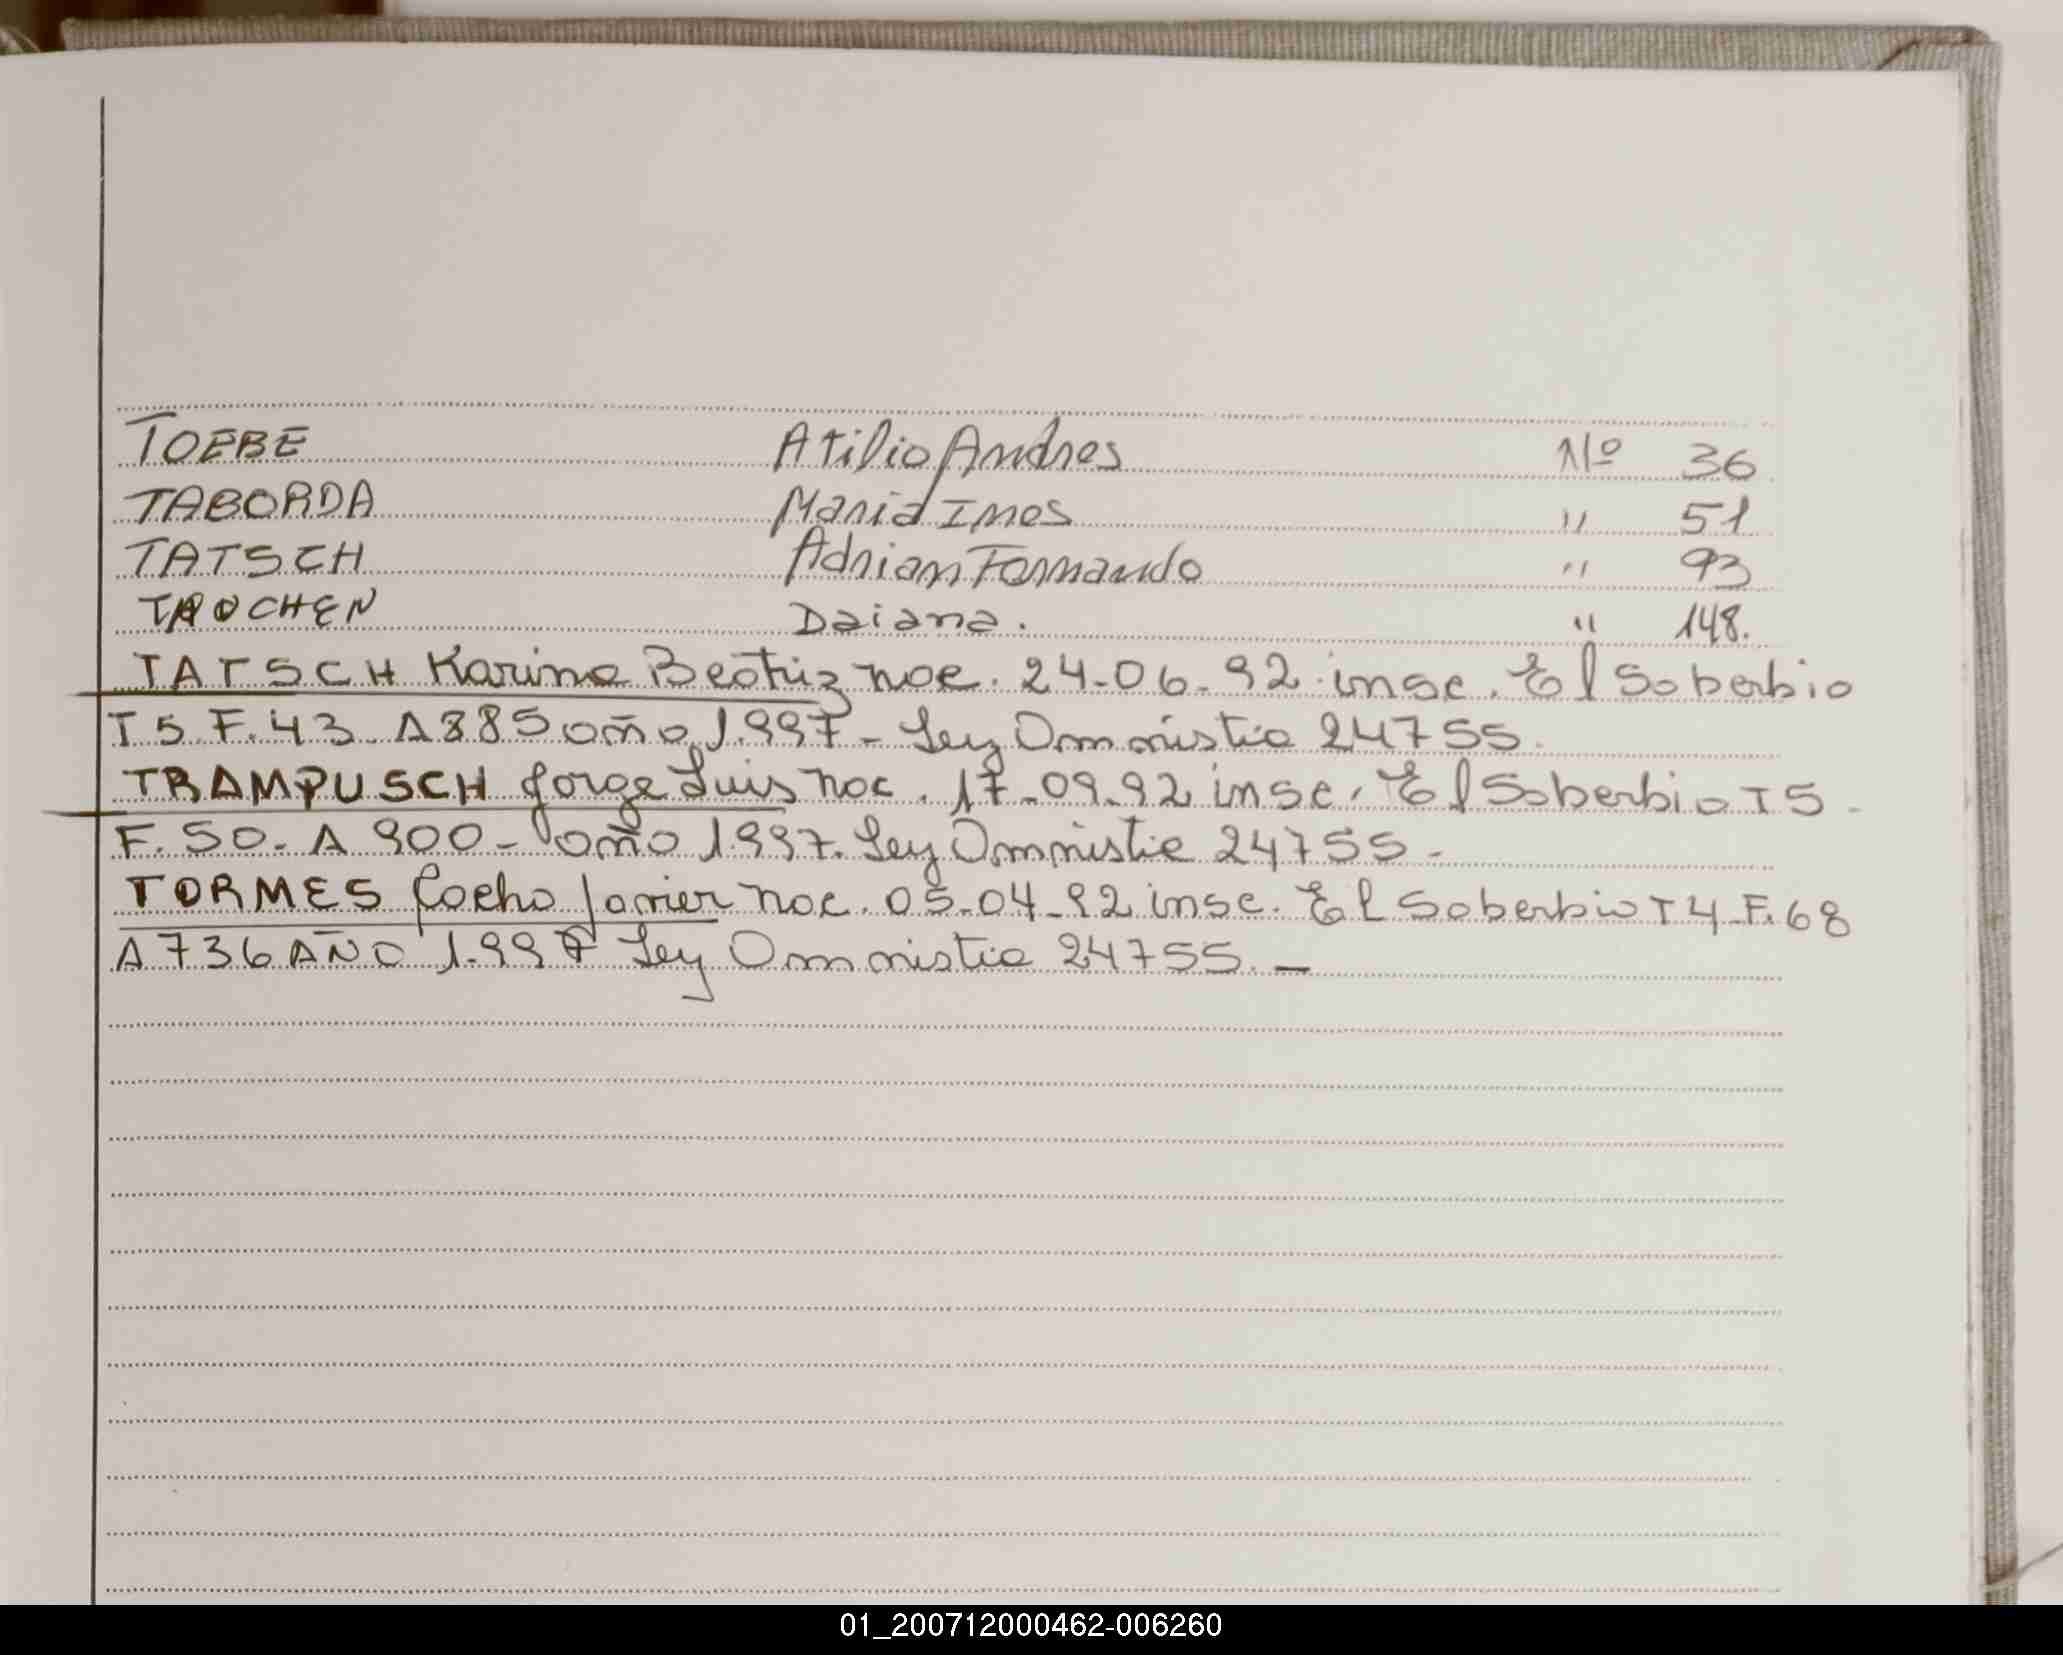 TOEBE Atilio Andres Nº 36
TABORDA Maria Ines " 51
TATSCH Adrian Fernando " 93
TAOCHEN Daiana. " 148.
TATSCH Karina Beatriz nac. 24-06-92 insc. El Soberbio
T5. F.43. A885 año 1.997 - Ley Omnistia 24755.
TRAMPUSCH Jorge Luis nac. 17-09-92 insc. El Soberbio T5-
F.50. A 900 - año 1.997. Ley Omnistia 24755 -
TORMES Javier nac. 05-04-92 insc. El Soberbio T4-F.68
A736 AÑO 1.997 Ley Omnistia 24755. -
01_200712000462-006260